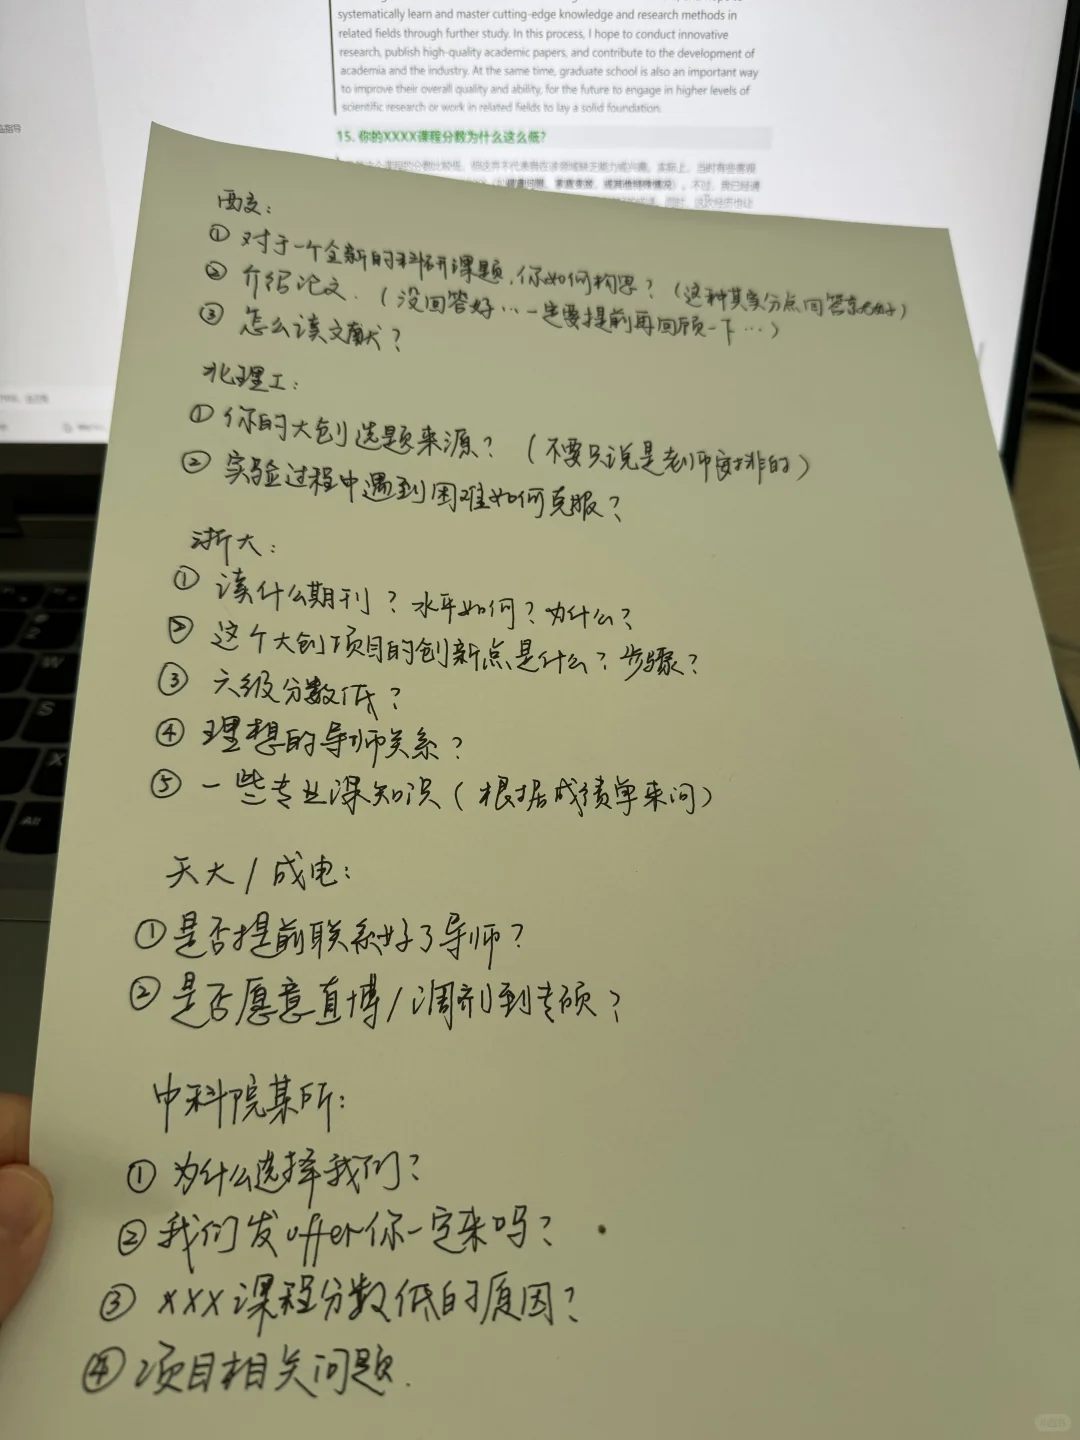 systematically learn and master cutting-edge knowledge and research methods in
related fields through further study. In this process, I hope to conduct innovative
research, publish high-quality academic papers, and contribute to the development of
academia and the industry. At the same time, graduate school is also an important way
to improve their overall quality and ability, for the future to engage in higher levels of
scientific research or work in related fields to lay a solid foundation.
15. 你的XXXX课程分数为什么这么低?
西交:
① 对于一个全新的科研课题,你如何构思?(这种其实分点回答就好)
② 介绍论文.(没回答好…一定要提前再回顾一下…)
③ 怎么读文献?
北理工:
① 你的大创选题来源?(不要只说是老师安排的)
② 实验过程中遇到困难如何克服?
浙大:
① 读什么期刊?水平如何?为什么?
② 这个大创项目的创新点是什么?步骤?
③ 六级分数低?
④ 理想的导师关系?
⑤ 一些专业课知识(根据成绩单来问)
天大/成电:
① 是否提前联系好了导师?
② 是否愿意直博/调剂到专硕?
中科院某所:
① 为什么选择我们?
② 我们发offer你一定来吗?
③ XXX课程分数低的原因?
④ 项目相关问题.
W
S
X
Alt